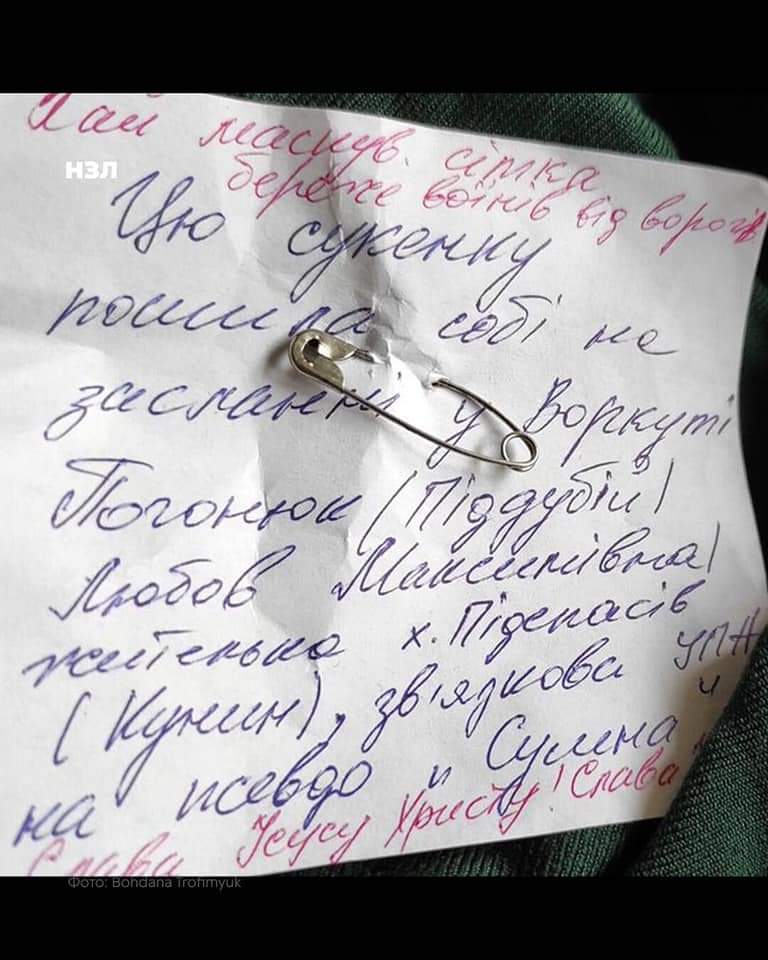 Хай маскув. сітка
береже воїнів від ворогів
НЗЛ
Цю сукенку
пошила собі на
засланні у Воркуті
Погонюк (Піддубій)
Любов Максимівна,
жителька х. Підспасів
(Кунин), зв'язкова УПА
на псевдо "Сумна"
Слава Ісусу Христу! Слава
Фото: Bohdana Trofimyuk